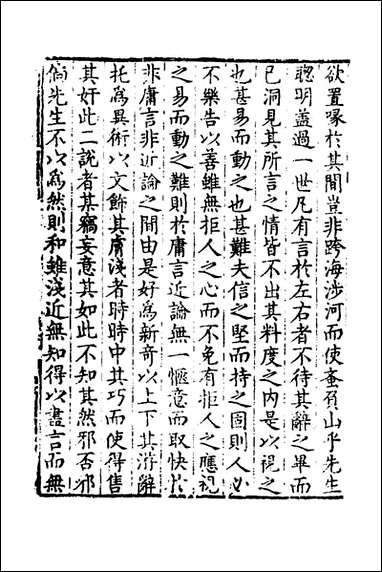 欲置喙於其間豈非跨海涉河而使蚉負山乎先生
聰明葢過一世凡有言於左右者不待其辭之畢而
已洞見其所言之情皆不出其料度之内是以視之
也甚易而動之也甚難夫信之堅而持之固則人必
不樂告以善雖無拒人之心而不免有拒人之應視
之易而動之難則於庸言近論無一愜意而取快於
非庸言非近論之間由是好為新奇以上下其游辭
托為異術以文飾其膚淺者時時中其巧而使得售
其奸此二說者某竊妄意其如此不知其然邪否邪
倘先生不以為然則和雖淺近無知得以盡言而無